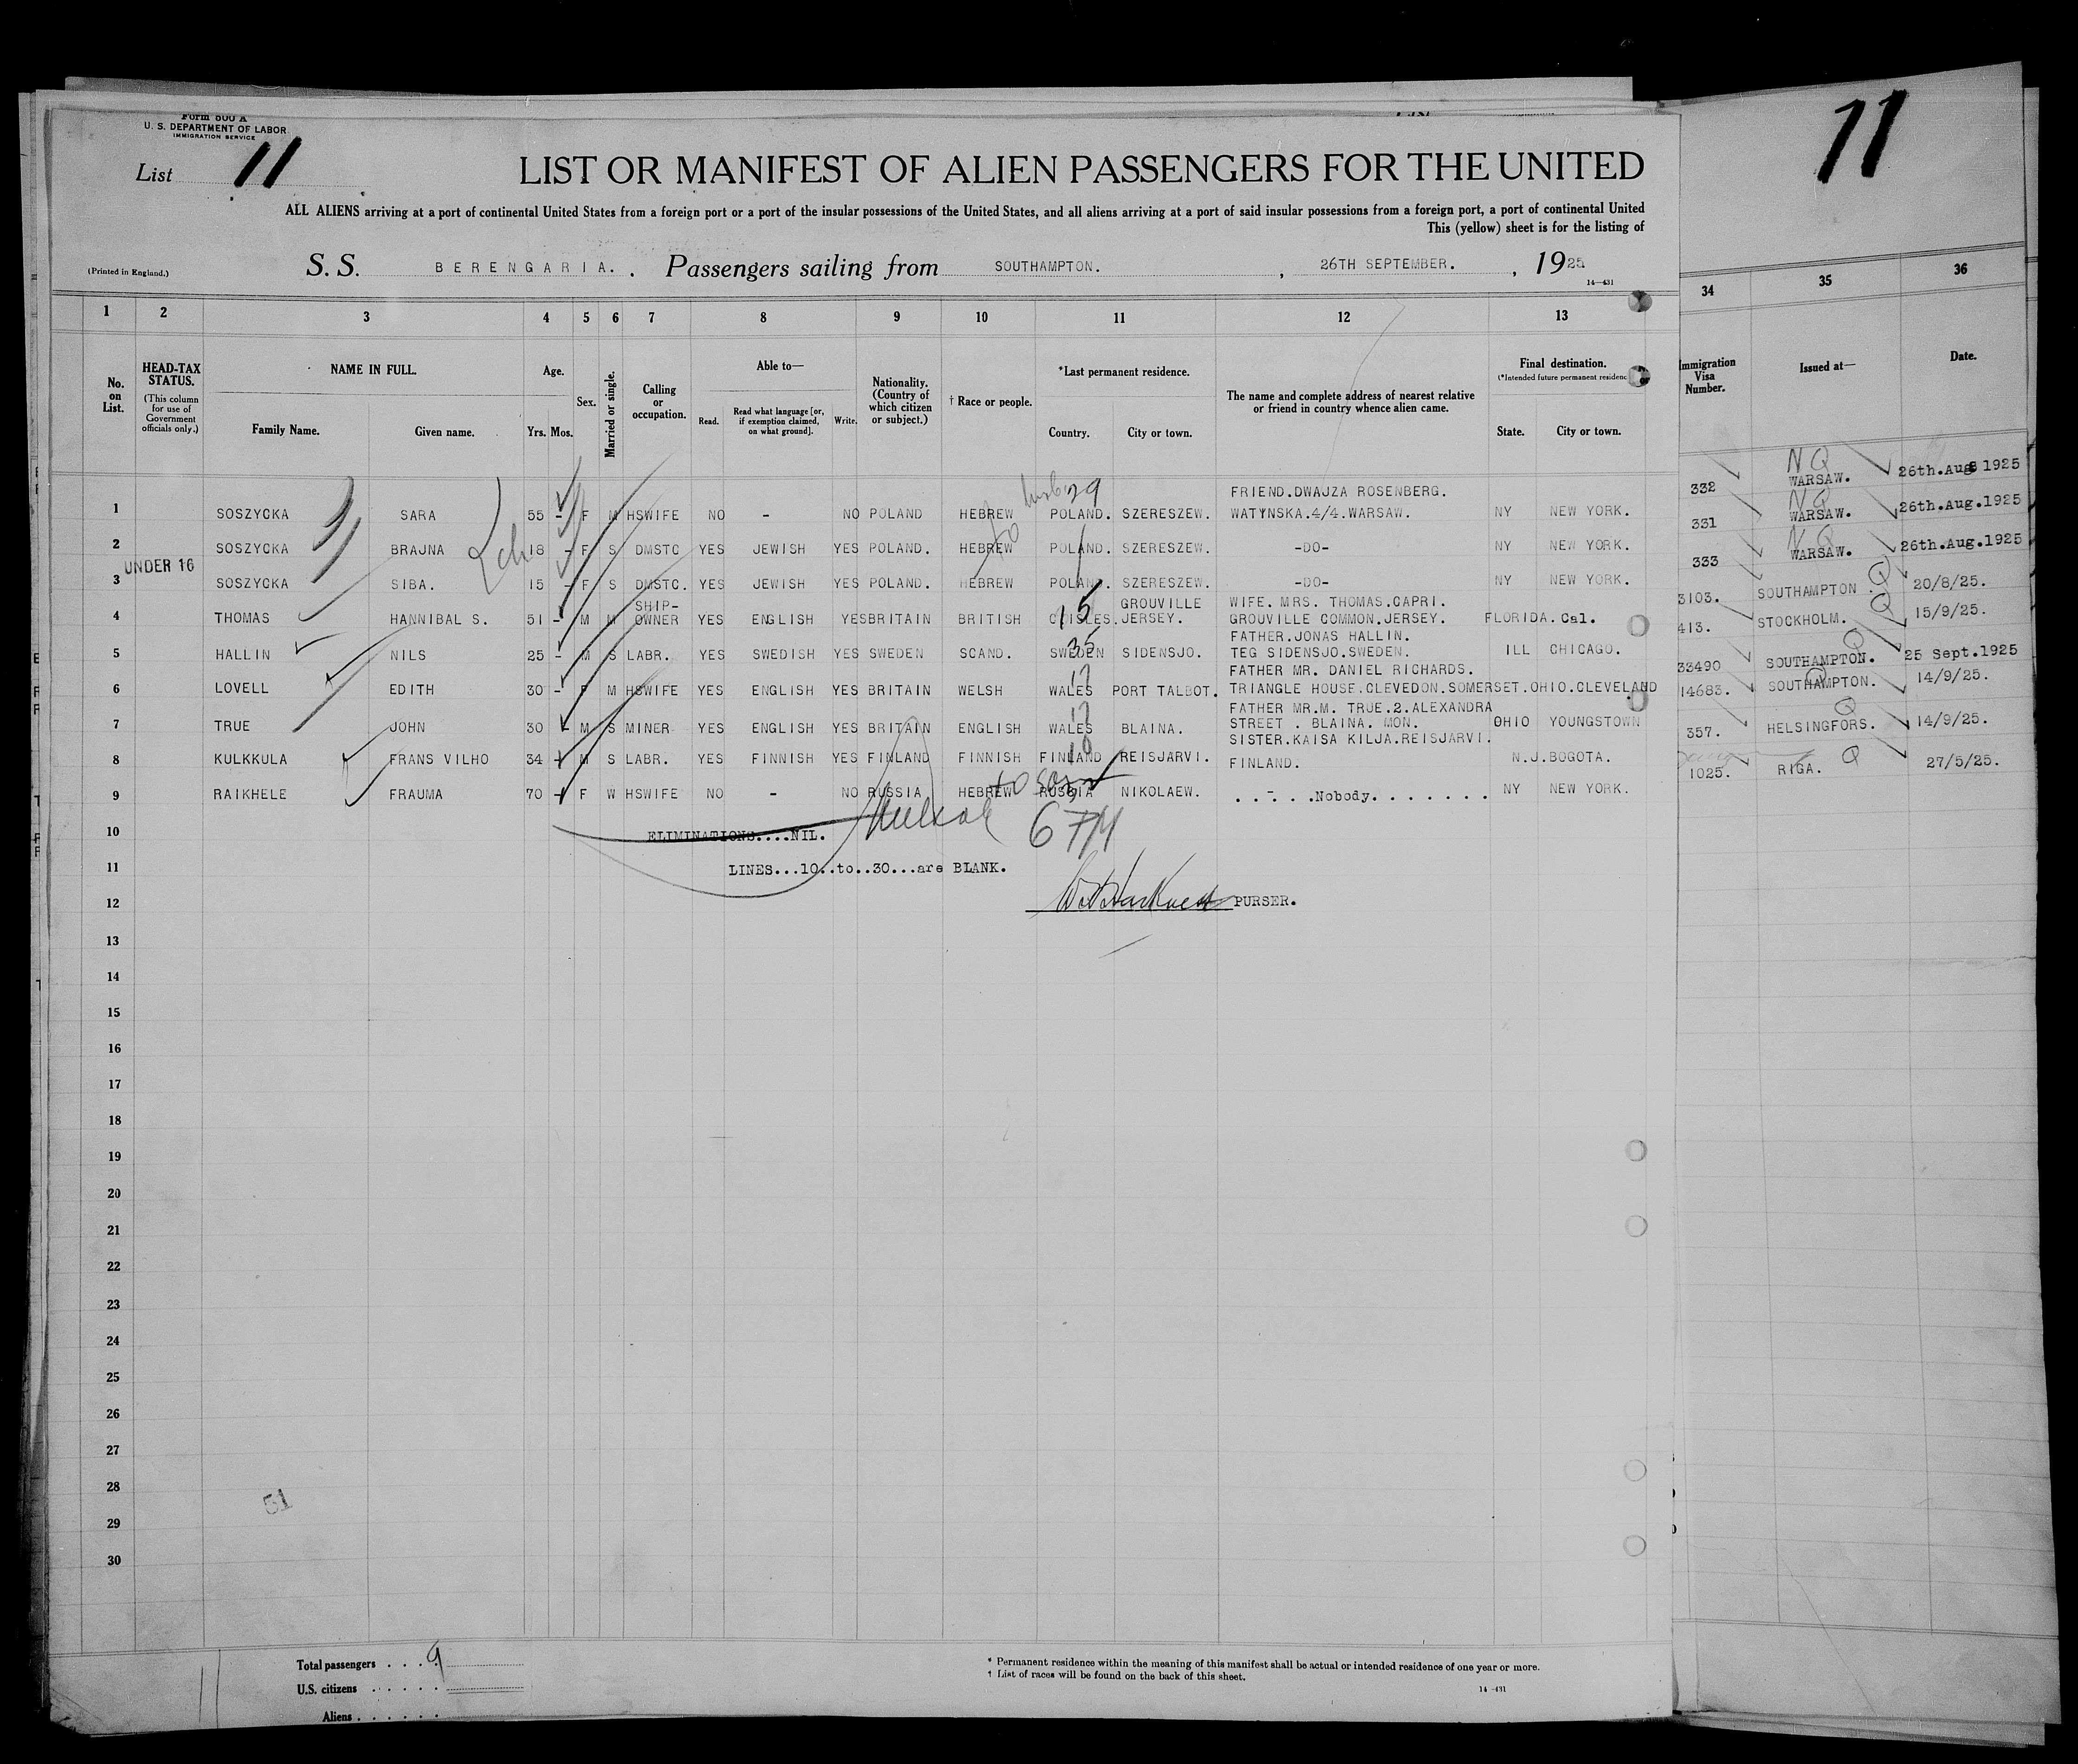 Form 500 A
U. S. DEPARTMENT OF LABOR
IMMIGRATION SERVICE
List 11
11
LIST OR MANIFEST OF ALIEN PASSENGERS FOR THE UNITED
ALL ALIENS arriving at a port of continental United States from a foreign port or a port of the insular possessions of the United States, and all aliens arriving at a port of said insular possessions from a foreign port, a port of continental United
This (yellow) sheet is for the listing of
(Printed in England.) S. S. BERENGARIA. Passengers sailing from SOUTHAMPTON. , 26TH SEPTEMBER. , 1925
14—431
1 2 3 4 5 6 7 8 9 10 11 12 13 34 35 36
No. on List.
HEAD-TAX STATUS. (This column for use of Government officials only.)
NAME IN FULL.
Family Name. Given name.
Age. Yrs. Mos.
Sex.
Married or single.
Calling or occupation.
Able to—
Read. Read what language [or, if exemption claimed, on what ground]. Write.
Nationality. (Country of which citizen or subject.)
† Race or people.
*Last permanent residence.
Country. City or town.
The name and complete address of nearest relative or friend in country whence alien came.
Final destination.
(*Intended future permanent residence
State. City or town.
Immigration Visa Number.
Issued at—
Date.
29
FRIEND.DWAJZA ROSENBERG.
1 SOSZYCKA SARA 55 - F M HSWIFE NO - NO POLAND HEBREW POLAND. SZERESZEW. WATYNSKA.4/4.WARSAW. NY NEW YORK. 332 NQ WARSAW. 26th.Aug 1925
2 SOSZYCKA BRAJNA 18 - F S DMSTC YES JEWISH YES POLAND. HEBREW POLAND. SZERESZEW. -DO- NY NEW YORK. 331 NQ WARSAW. 26th.Aug.1925
UNDER 16
3 SOSZYCKA SIBA. 15 - F S DMSTC. YES JEWISH YES POLAND. HEBREW POLAND. SZERESZEW. -DO- NY NEW YORK. 333 NQ WARSAW. 26th.Aug.1925
SHIP- GROUVILLE WIFE. MRS. THOMAS.CAPRI.
4 THOMAS HANNIBAL S. 51 - M M OWNER YES ENGLISH YES BRITAIN BRITISH 15 JERSEY. GROUVILLE COMMON.JERSEY. FLORIDA. Cal. 3103. SOUTHAMPTON. Q 20/8/25.
FATHER.JONAS HALLIN.
5 HALLIN NILS 25 - M S LABR. YES SWEDISH YES SWEDEN SCAND. SWEDEN 35 SIDENSJO. TEG SIDENSJO.SWEDEN. ILL CHICAGO. 413. STOCKHOLM. Q 15/9/25.
FATHER MR. DANIEL RICHARDS.
6 LOVELL EDITH 30 - F M HSWIFE YES ENGLISH YES BRITAIN WELSH WALES 17 PORT TALBOT. TRIANGLE HOUSE.CLEVEDON.SOMERSET.OHIO.CLEVELAND 33490 SOUTHAMPTON. Q 25 Sept.1925
FATHER MR.M. TRUE.2.ALEXANDRA
7 TRUE JOHN 30 - M S MINER YES ENGLISH YES BRITAIN ENGLISH WALES 17 BLAINA. STREET . BLAINA. MON. OHIO YOUNGSTOWN 14683. SOUTHAMPTON. Q 14/9/25.
SISTER.KAISA KILJA.REISJARVI.
8 KULKKULA FRANS VILHO 34 - M S LABR. YES FINNISH YES FINLAND FINNISH FINLAND 10 REISJARVI. FINLAND. N.J.BOGOTA. 357. HELSINGFORS. Q 14/9/25.
9 RAIKHELE FRAUMA 70 - F W HSWIFE NO - NO RUSSIA HEBREW RUSSIA NIKOLAEW. . . . . .Nobody. . . . . . . NY NEW YORK. 1025. RIGA. Q 27/5/25.
to son
10 ELIMINATIONS....NIL.
11 LINES...10..to..30...are BLANK.
12 PURSER.
13
14
15
16
17
18
19
20
21
22
23
24
25
26
27
28
51
29
30
Total passengers . . . . 9
U.S. citizens . . . . . .
Aliens . . . . . .
* Permanent residence within the meaning of this manifest shall be actual or intended residence of one year or more.
† List of races will be found on the back of this sheet.
14—431